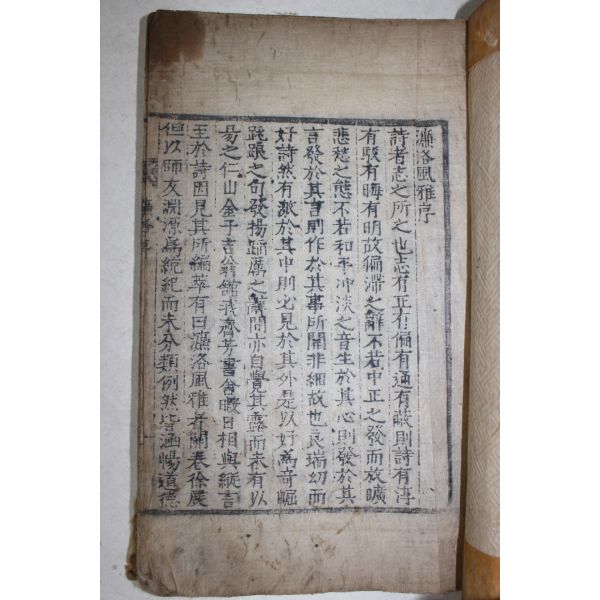 濂洛風雅序
詩者志之所之也志有正有偏有通有蔽則詩有淳
有駁有晦有明故偏滯之辭不若中正之發而放曠
悲愁之態不若和平冲淡之音生於其心則發於其
言發於其言則作於其事所關非細故也良瑞幼而
好詩然有激於其中則必見於其外是以好爲奇崛
跌踼之句發揚蹈厲之辭間亦自覺其露而未有以
易之仁山金子吉翁館我齊芳書舍暇日相與縱言
至於詩因見其所編萃有曰濂洛風雅者開卷徐展
但以師友淵源爲統紀而未分類例然皆涵暢道德